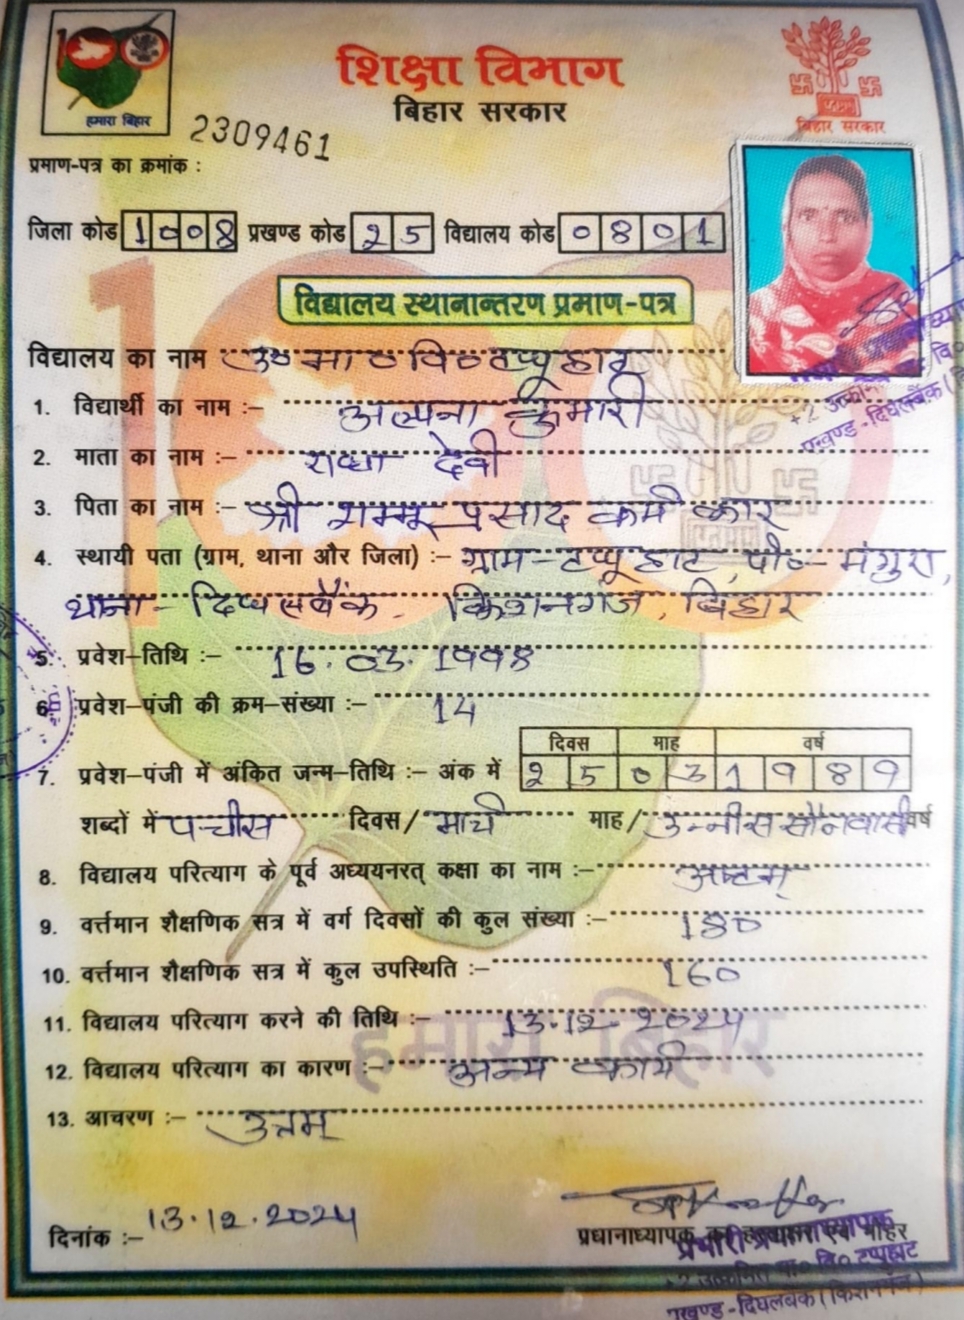 हमारा बिहार
शिक्षा विभाग
बिहार सरकार
बिहार सरकार
2309461
प्रमाण-पत्र का क्रमांक :
जिला कोड 1008 प्रखण्ड कोड 25 विद्यालय कोड 0801
विद्यालय स्थानान्तरण प्रमाण-पत्र
विद्यालय का नाम उ० मा० वि० टप्पूहाट
1. विद्यार्थी का नाम :- अल्पना कुमारी
2. माता का नाम :- राधा देवी
3. पिता का नाम :- श्री शम्भू प्रसाद कर्मकार
4. स्थायी पता (ग्राम, थाना और जिला) :- ग्राम-टप्पूहाट, पो०- मंगुरा,
थाना- दिघलबैंक, किशनगंज, बिहार
5. प्रवेश-तिथि :- 16.03.1998
6. प्रवेश-पंजी की क्रम-संख्या :- 14
दिवस माह वर्ष
7. प्रवेश-पंजी में अंकित जन्म-तिथि :- अंक में 25 03 1989
शब्दों में पच्चीस दिवस/ मार्च माह/ उन्नीस सौ नवासी वर्ष
8. विद्यालय परित्याग के पूर्व अध्ययनरत् कक्षा का नाम :- अष्टम्
9. वर्त्तमान शैक्षणिक सत्र में वर्ग दिवसों की कुल संख्या :- 180
10. वर्त्तमान शैक्षणिक सत्र में कुल उपस्थिति :- 160
11. विद्यालय परित्याग करने की तिथि :- 13.12.2024
12. विद्यालय परित्याग का कारण :- अन्य कार्य
13. आचरण :- उत्तम्
हमारा बिहार
दिनांक :- 13.12.2024
प्रधानाध्यापक का हस्ताक्षर एवं मोहर
प्रभारी प्रधानाध्यापक
+2 उत्क्रमित मा० वि० टप्पुहाट
प्रखण्ड-दिघलबैंक (किशनगंज)